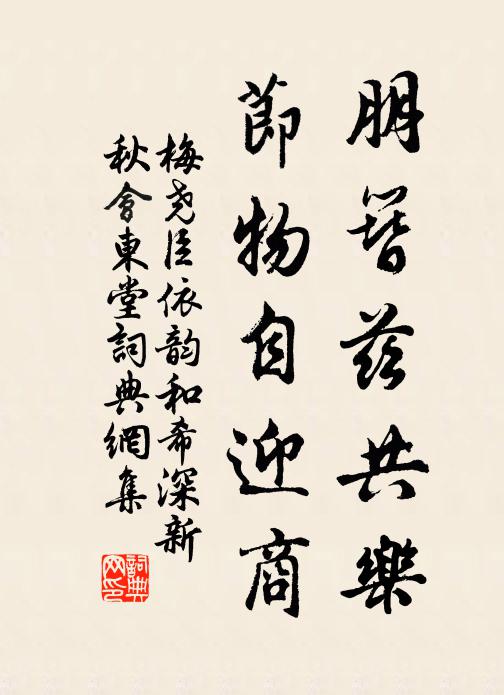 朋簪茲共樂
節物自迎商
梅堯臣依韵和希深新
秋會東堂詞典網集
詞典网印